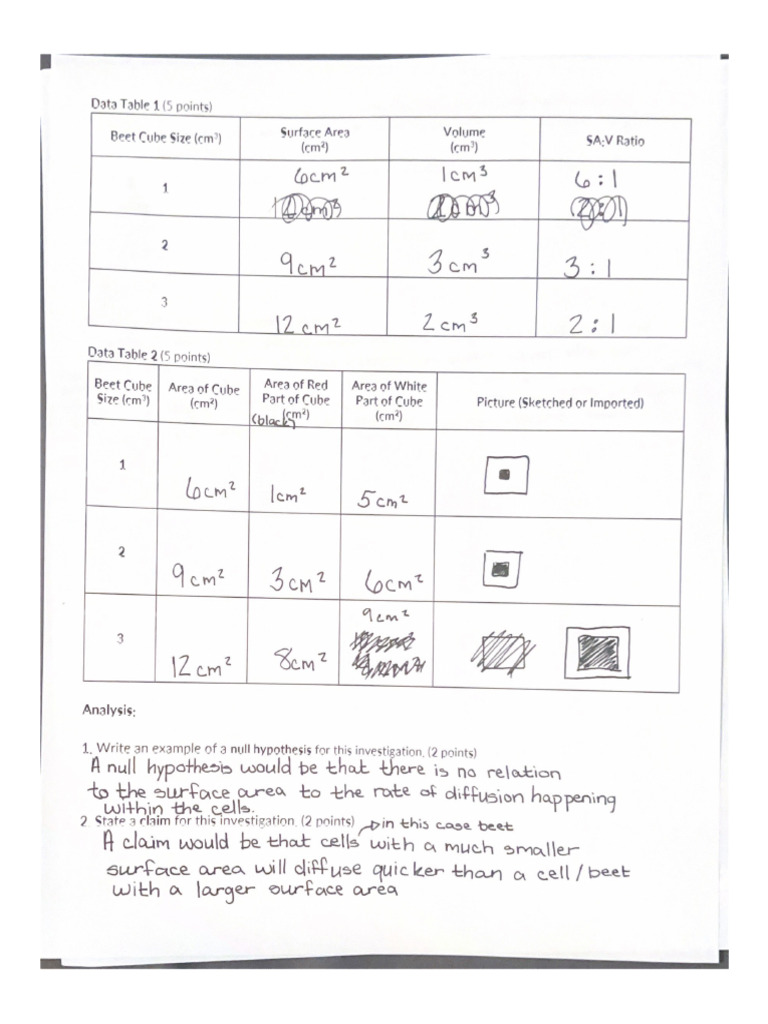 Data Table 1 (5 points)
Beet Cube Size (cm³) Surface Area (cm²) Volume (cm³) SA:V Ratio
1 6cm² 1cm³ 6:1
2 9cm² 3cm³ 3:1
3 12cm² 2cm³ 2:1
Data Table 2 (5 points)
Beet Cube Size (cm³) Area of Cube (cm²) Area of Red Part of Cube (cm²) (black) Area of White Part of Cube (cm²) Picture (Sketched or Imported)
1 6cm² 1cm² 5cm²
2 9cm² 3cm² 6cm²
3 12cm² 8cm² 9cm²
Analysis:
1. Write an example of a null hypothesis for this investigation. (2 points)
A null hypothesis would be that there is no relation
to the surface area to the rate of diffusion happening
within the cells.
2. State a claim for this investigation. (2 points) in this case beet
A claim would be that cells with a much smaller
surface area will diffuse quicker than a cell/beet
with a larger surface area